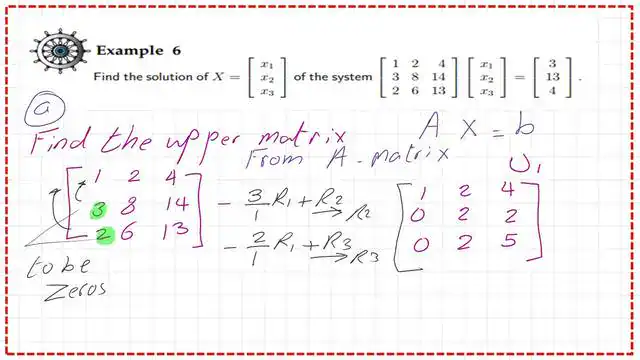 Example 6
Find the solution of X = [x₁ x₂ x₃] of the system [1 2 4; 3 8 14; 2 6 13] [x₁ x₂ x₃] = [3 13 4].
a
Find the upper matrix
A X = b
From A-matrix
U₁
1 2 4
3 8 14
2 6 13
- 3/1 R₁ + R₂ → R₂
- 2/1 R₁ + R₃ → R₃
1 2 4
0 2 2
0 2 5
to be
zeros